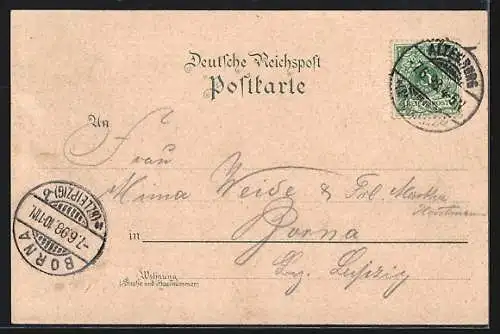 Deutsche Reichspost
Postkarte
ALTENBURG
An
Frau
Mima Weide & Frl. Martha
in Borna
Bz. Leipzig
BORNA
*(BZ. LEIPZIG)*
7.6.98. 10-11N.
Wohnung
(Straße und Hausnummer)